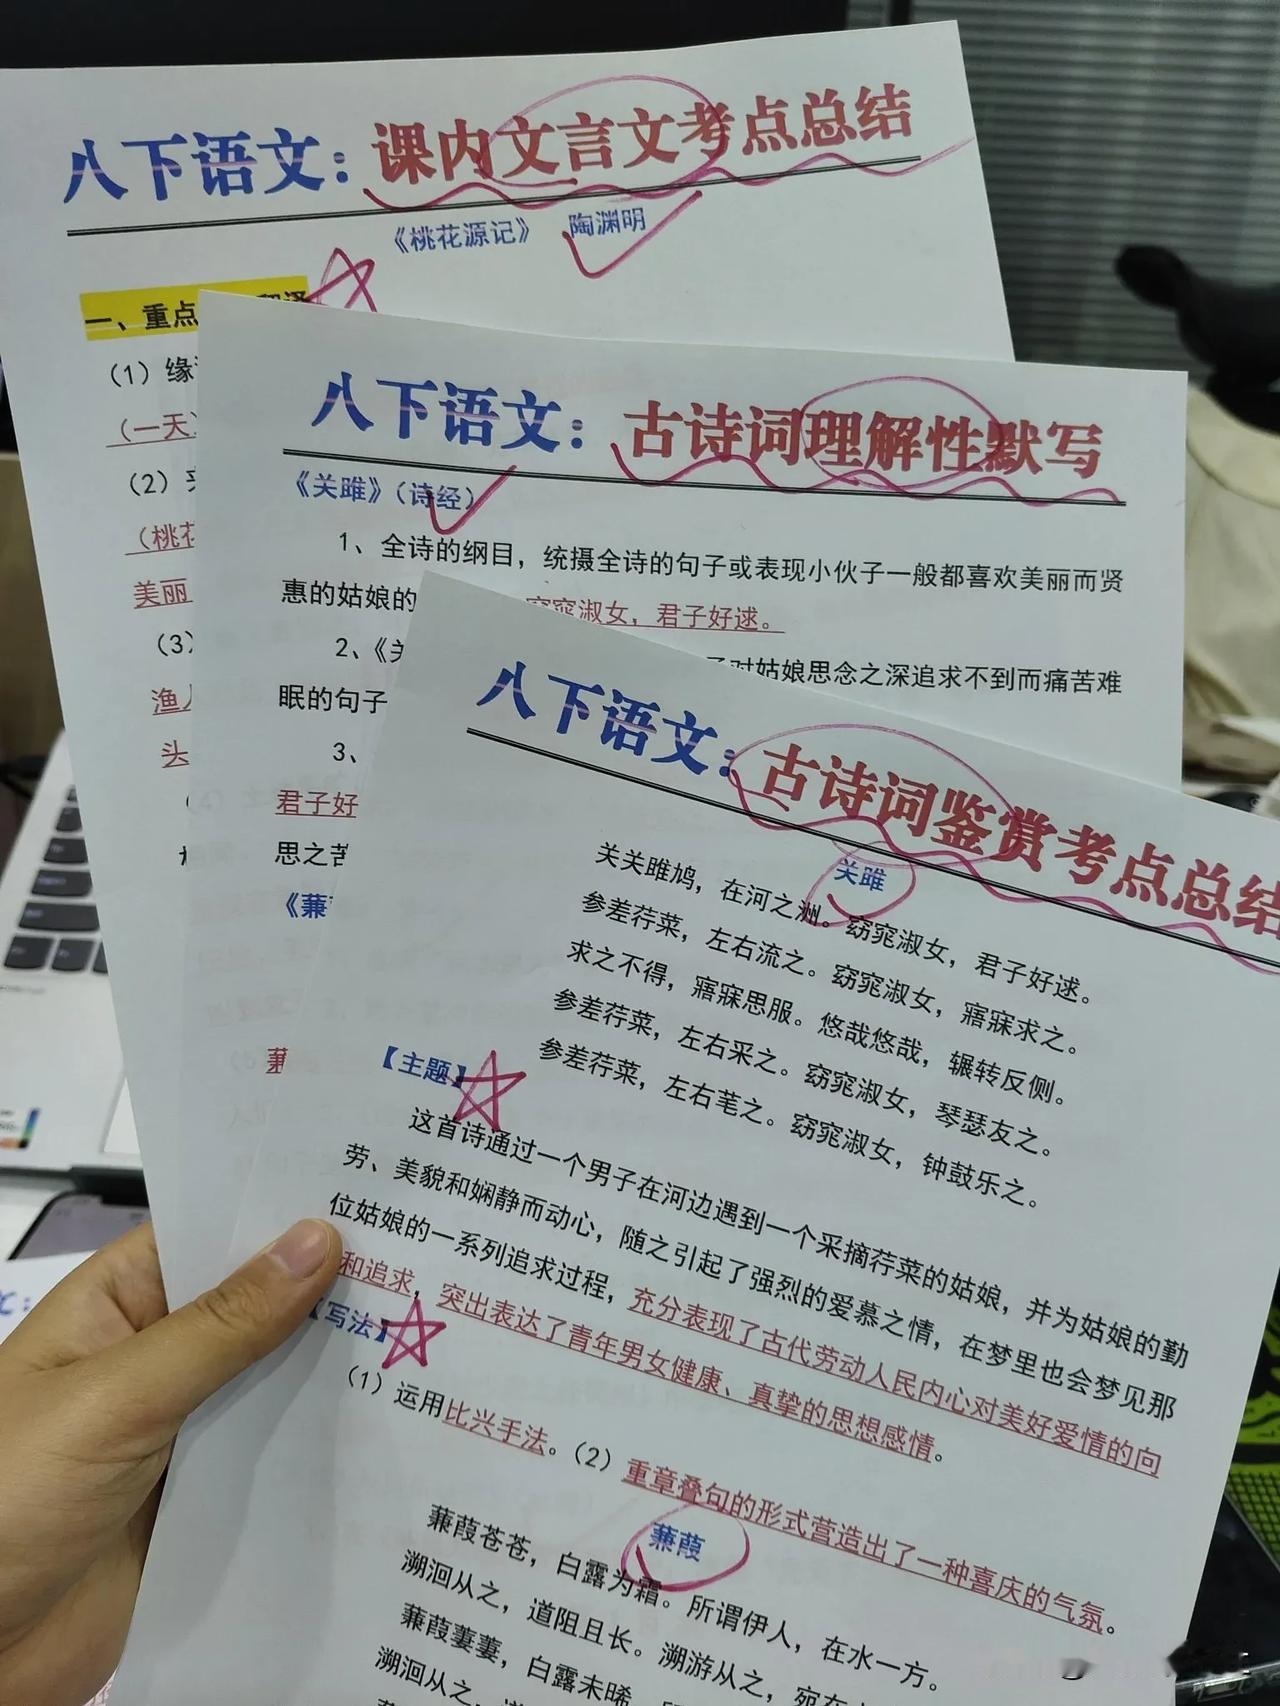 八下语文：课内文言文考点总结
《桃花源记》 陶渊明
一、重点
（1）缘
（一天）
（2）
（桃花
美丽
（3）
渔人
头
八下语文：古诗词理解性默写
《关雎》（诗经）
1、全诗的纲目，统摄全诗的句子或表现小伙子一般都喜欢美丽而贤
惠的姑娘的 窈窕淑女，君子好逑。
2、《关 对姑娘思念之深追求不到而痛苦难
眠的句子
3、
君子好
思之苦
《蒹
蒹
八下语文：古诗词鉴赏考点总结
关雎
关关雎鸠，在河之洲。窈窕淑女，君子好逑。
参差荇菜，左右流之。窈窕淑女，寤寐求之。
求之不得，寤寐思服。悠哉悠哉，辗转反侧。
参差荇菜，左右采之。窈窕淑女，琴瑟友之。
参差荇菜，左右芼之。窈窕淑女，钟鼓乐之。
【主题】
这首诗通过一个男子在河边遇到一个采摘荇菜的姑娘，并为姑娘的勤
劳、美貌和娴静而动心，随之引起了强烈的爱慕之情，在梦里也会梦见那
位姑娘的一系列追求过程，充分表现了古代劳动人民内心对美好爱情的向
和追求，突出表达了青年男女健康、真挚的思想感情。
【写法】
（1）运用比兴手法。（2）重章叠句的形式营造出了一种喜庆的气氛。
蒹葭
蒹葭苍苍，白露为霜。所谓伊人，在水一方。
溯洄从之，道阻且长。溯游从之，宛在
蒹葭萋萋，白露未晞。
溯洄从之，道